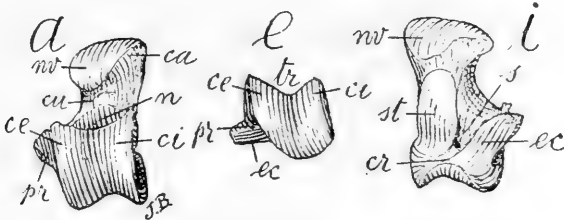 a
nv
ca
cu
n
ce
ci
pr
J.B.
e
tr
ce
ci
pr
ec
i
nv
s
st
ec
cr